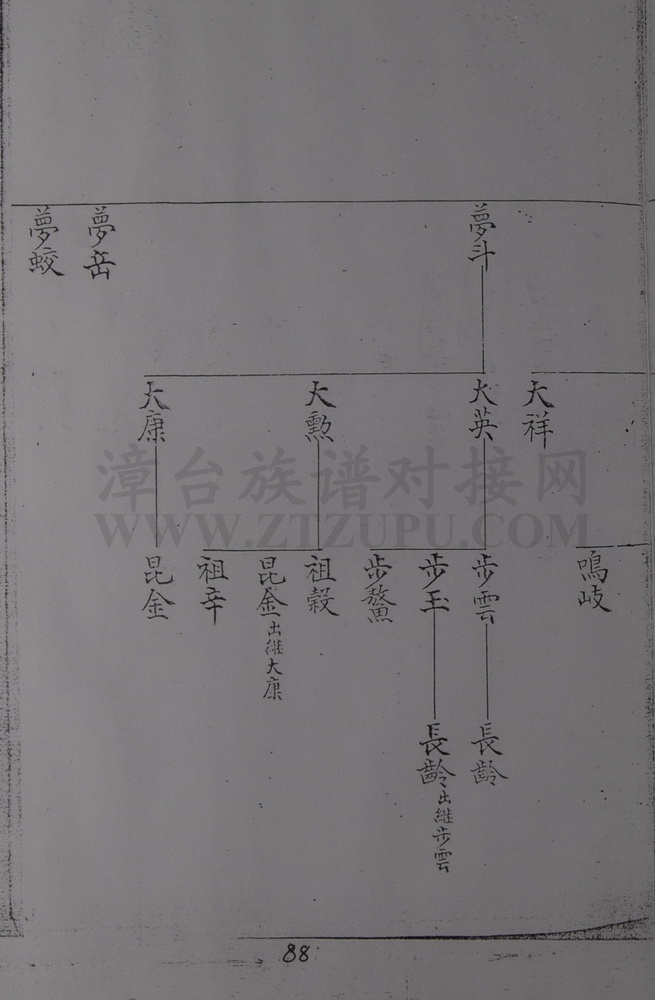 夢斗
夢岳
夢蛟
大祥
大英
大勲
大康
鳴岐
步雲
步玉
步鰲
祖穀
昆金出継大康
祖辛
昆金
長齡
長齡出継步雲
漳台族谱对接网
WWW.ZTZUPU.COM
88